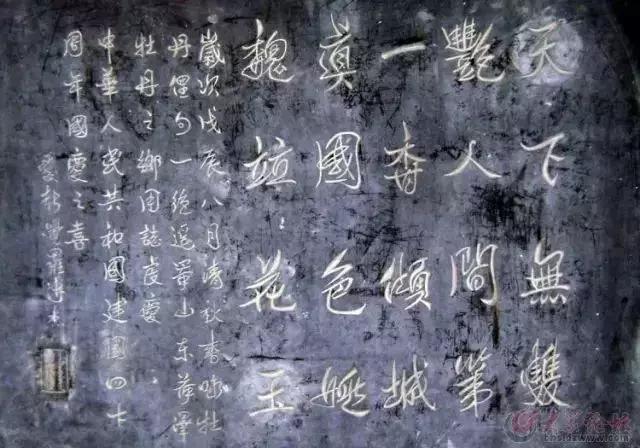 天下無雙
豔人間第
一香傾城
真國色姚
魏竝花王
歲次戊辰八月清秋喜咏牡
丹俚句一絕遥寄山东菏澤
牡丹之鄉用誌慶
中華人民共和國建國四十
周年國慶之喜
愛新覺羅溥杰